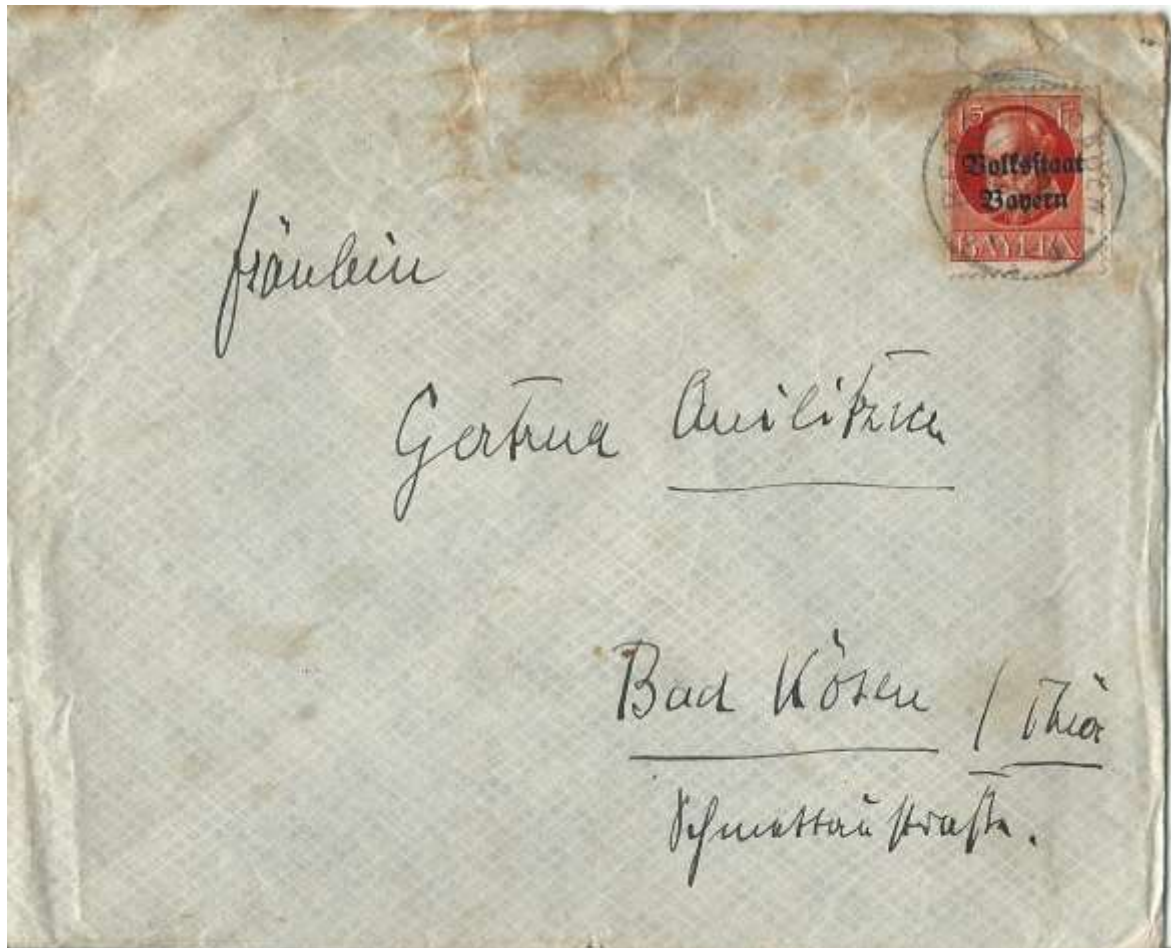 15
Volksstaat
Bayern
BAYERN
Fräulein
Gertrud
Bad Kösen / Thür
Schmettaustraße.